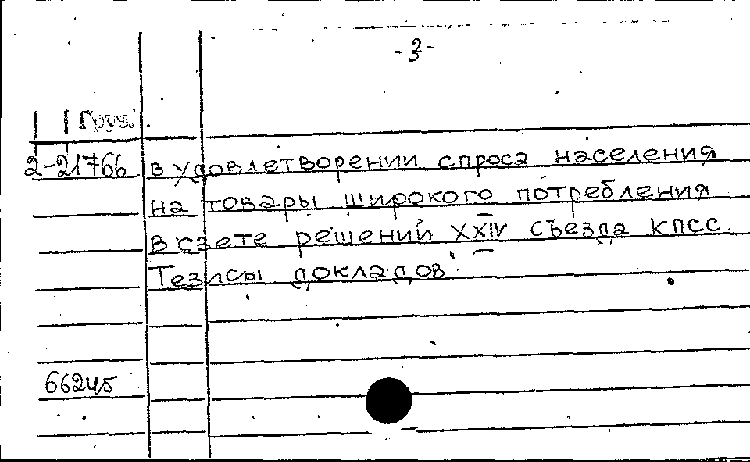 -3-
2-21766 в удовлетворении спроса населения
на товары широкого потребления
в свете решений XXIV съезда КПСС.
Тезисы докладов.
66245